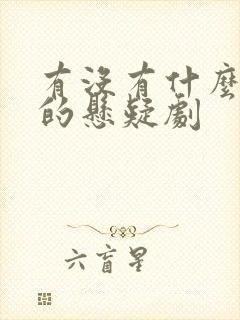 有沒有什麼
的懸疑劇
六盲星